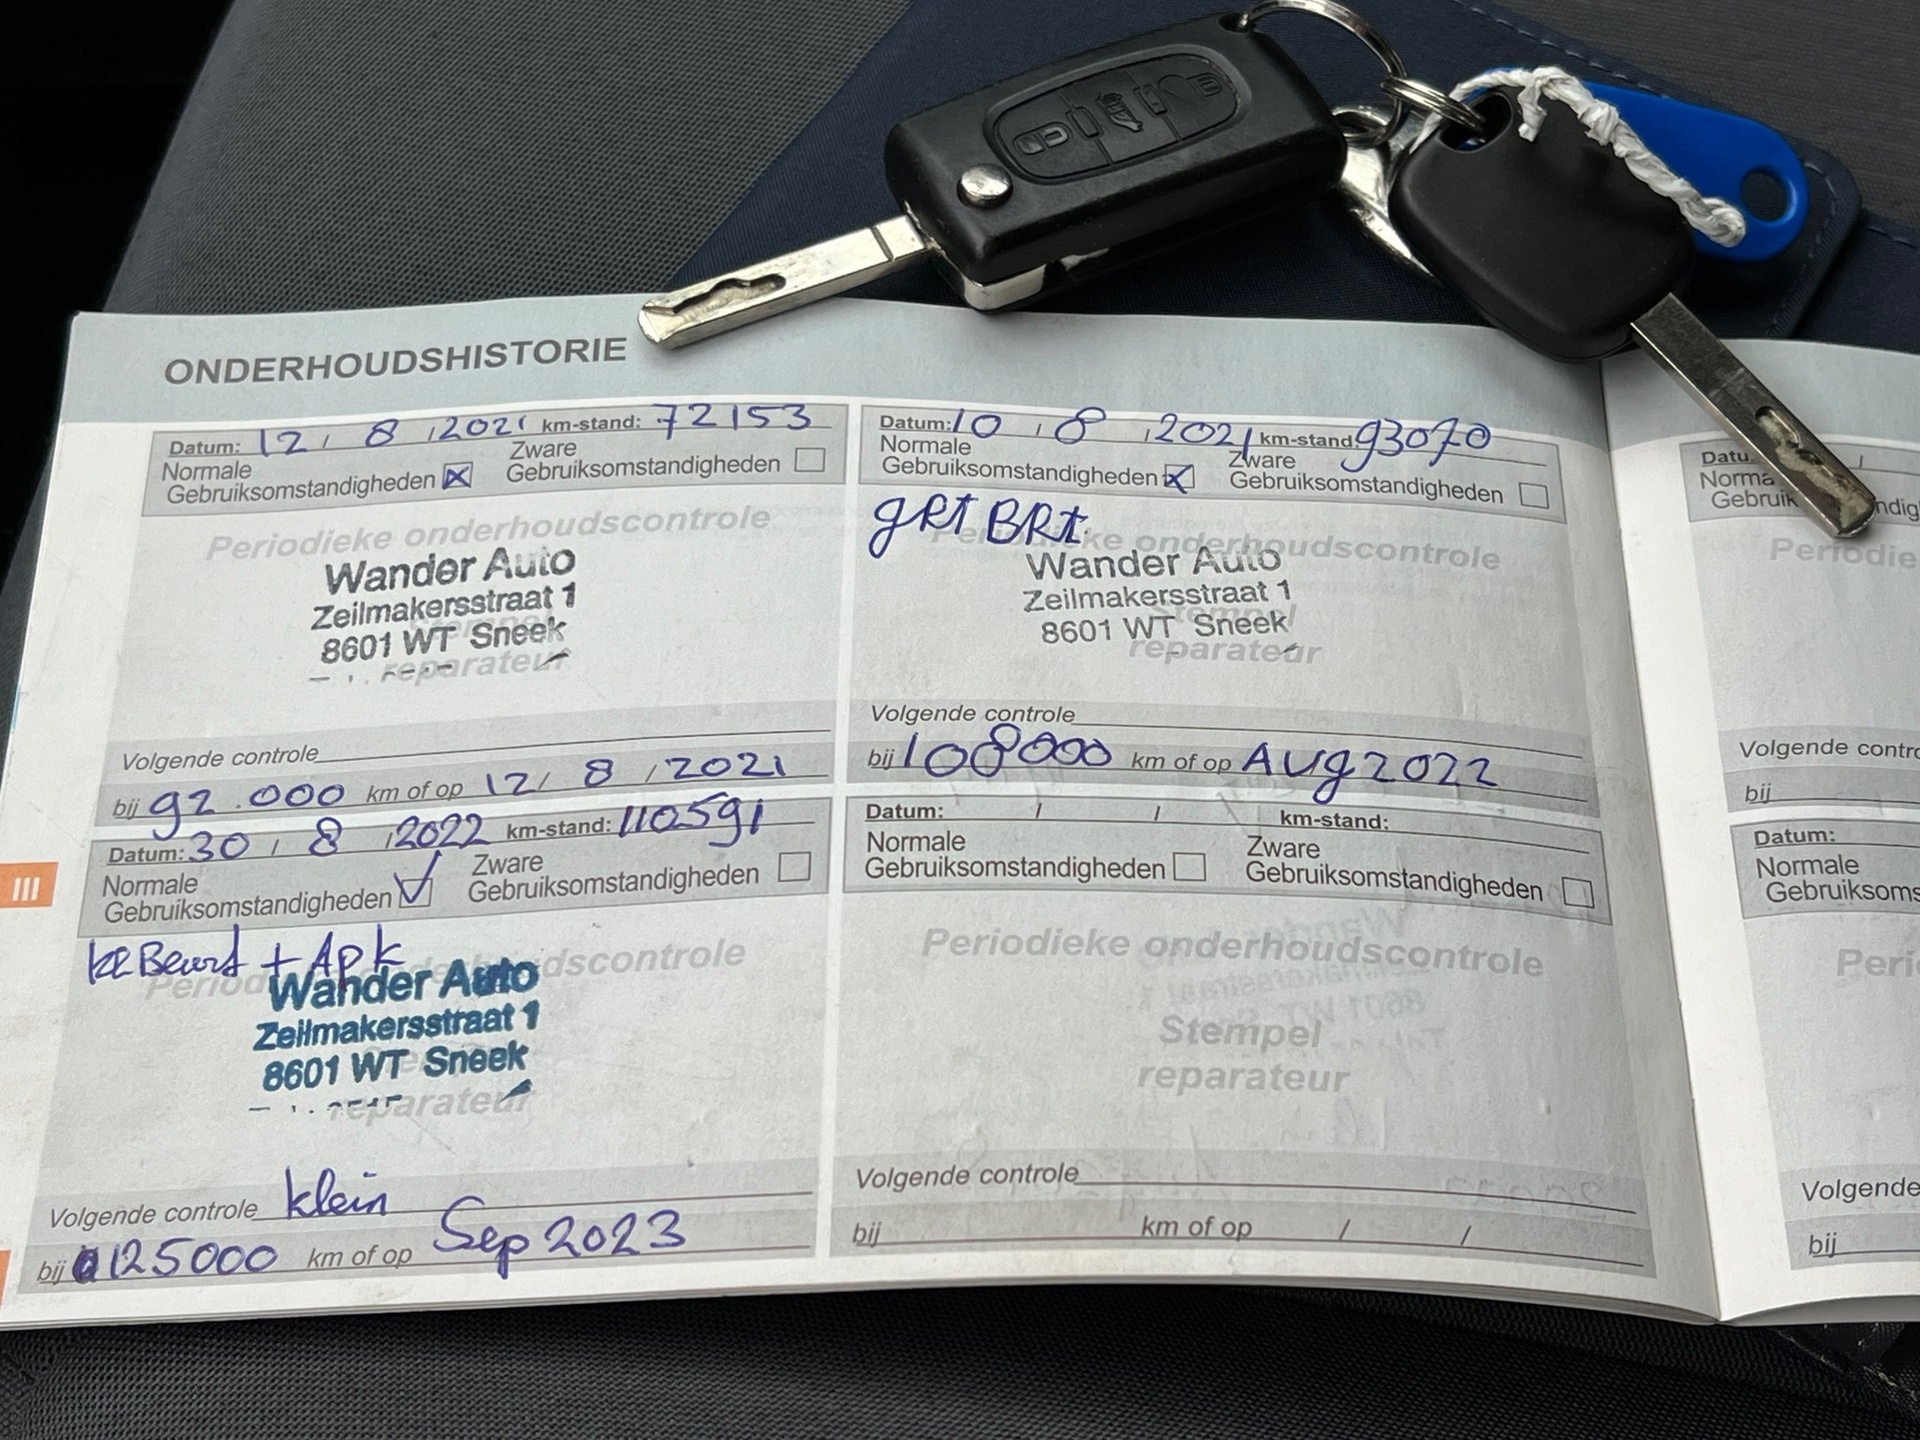 ONDERHOUDSHISTORIE
Datum: 12 / 8 / 2021 km-stand: 72153
Normale Gebruiksomstandigheden
Zware Gebruiksomstandigheden
Periodieke onderhoudscontrole
Wander Auto
Zeilmakersstraat 1
8601 WT Sneek
reparateur
Volgende controle
bij 92.000 km of op 12 / 8 / 2021
Datum: 10 / 8 / 2021 km-stand: 93070
Normale Gebruiksomstandigheden
Zware Gebruiksomstandigheden
gRt BRt
Periodieke onderhoudscontrole
Wander Auto
Zeilmakersstraat 1
Stempel
8601 WT Sneek
reparateur
Volgende controle
bij 108000 km of op Aug 2022
Datum: 30 / 8 / 2022 km-stand: 110591
Normale Gebruiksomstandigheden
Zware Gebruiksomstandigheden
kl Beurt + Apk
Periodieke onderhoudscontrole
Wander Auto
Zeilmakersstraat 1
8601 WT Sneek
reparateur
Volgende controle klein
bij 125000 km of op Sep 2023
Datum: / / km-stand:
Normale Gebruiksomstandigheden
Zware Gebruiksomstandigheden
Periodieke onderhoudscontrole
Stempel
reparateur
Volgende controle
bij km of op / /
III
Datu
Norma
Gebruik
Periodie
Volgende contro
bij
Datum:
Normale
Gebruiksoms
Peri
Volgende
bij